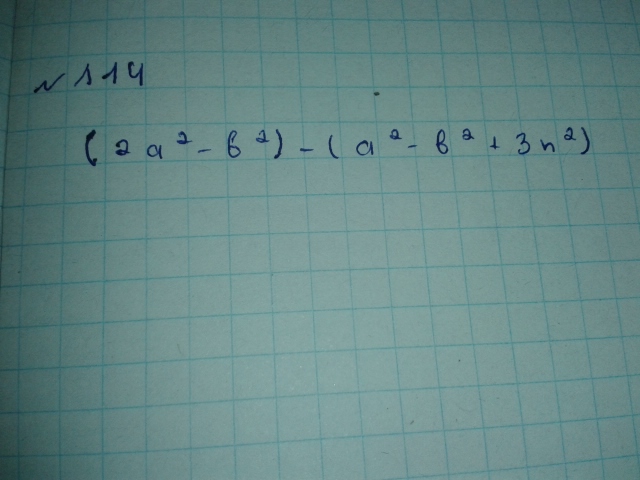 № 114
(2a² - b²) - (a² - b² + 3n²)